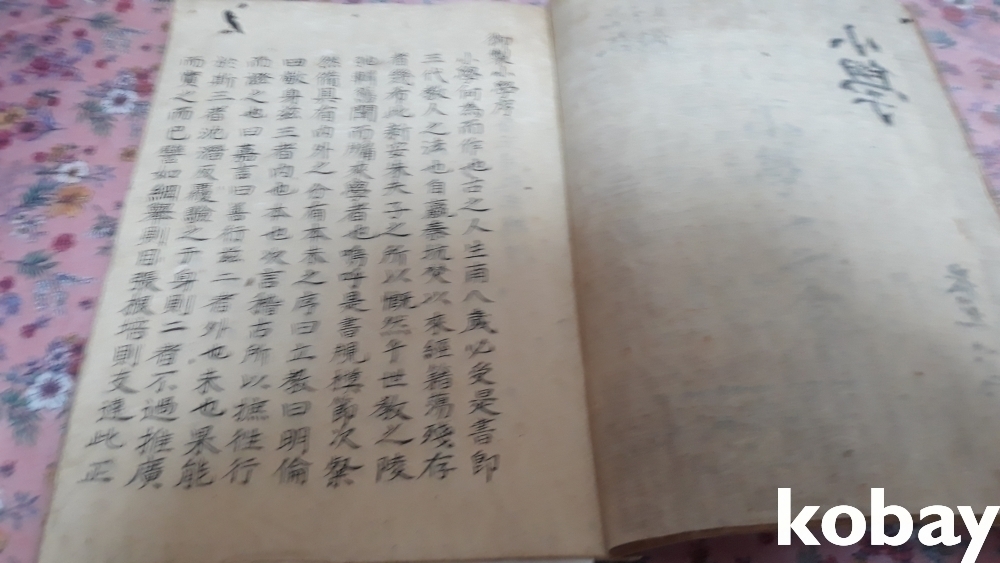 御製小學序
小學何爲而作也古之人生甫八歲必受是書卽
三代敎人之法也自嬴秦坑焚以來經籍蕩殘存
者幾希此新安朱夫子之所以慨然乎世敎之陵
弛輯舊聞而牖來學者也嗚呼是書規模節次粲
然備具有內外之分有本末之序曰立敎曰明倫
曰敬身玆三者內也本也次言稽古所以摭往行
而證之也曰嘉言曰善行玆二者外也末也果能
於斯三者沈潛反覆驗之于身則二者不過推廣
而實之而已譬如綱擧則目張根培則支達此正
kobay